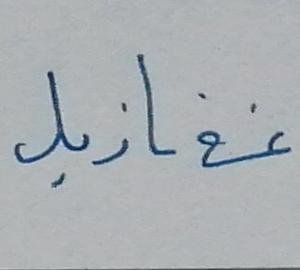 غغازيل